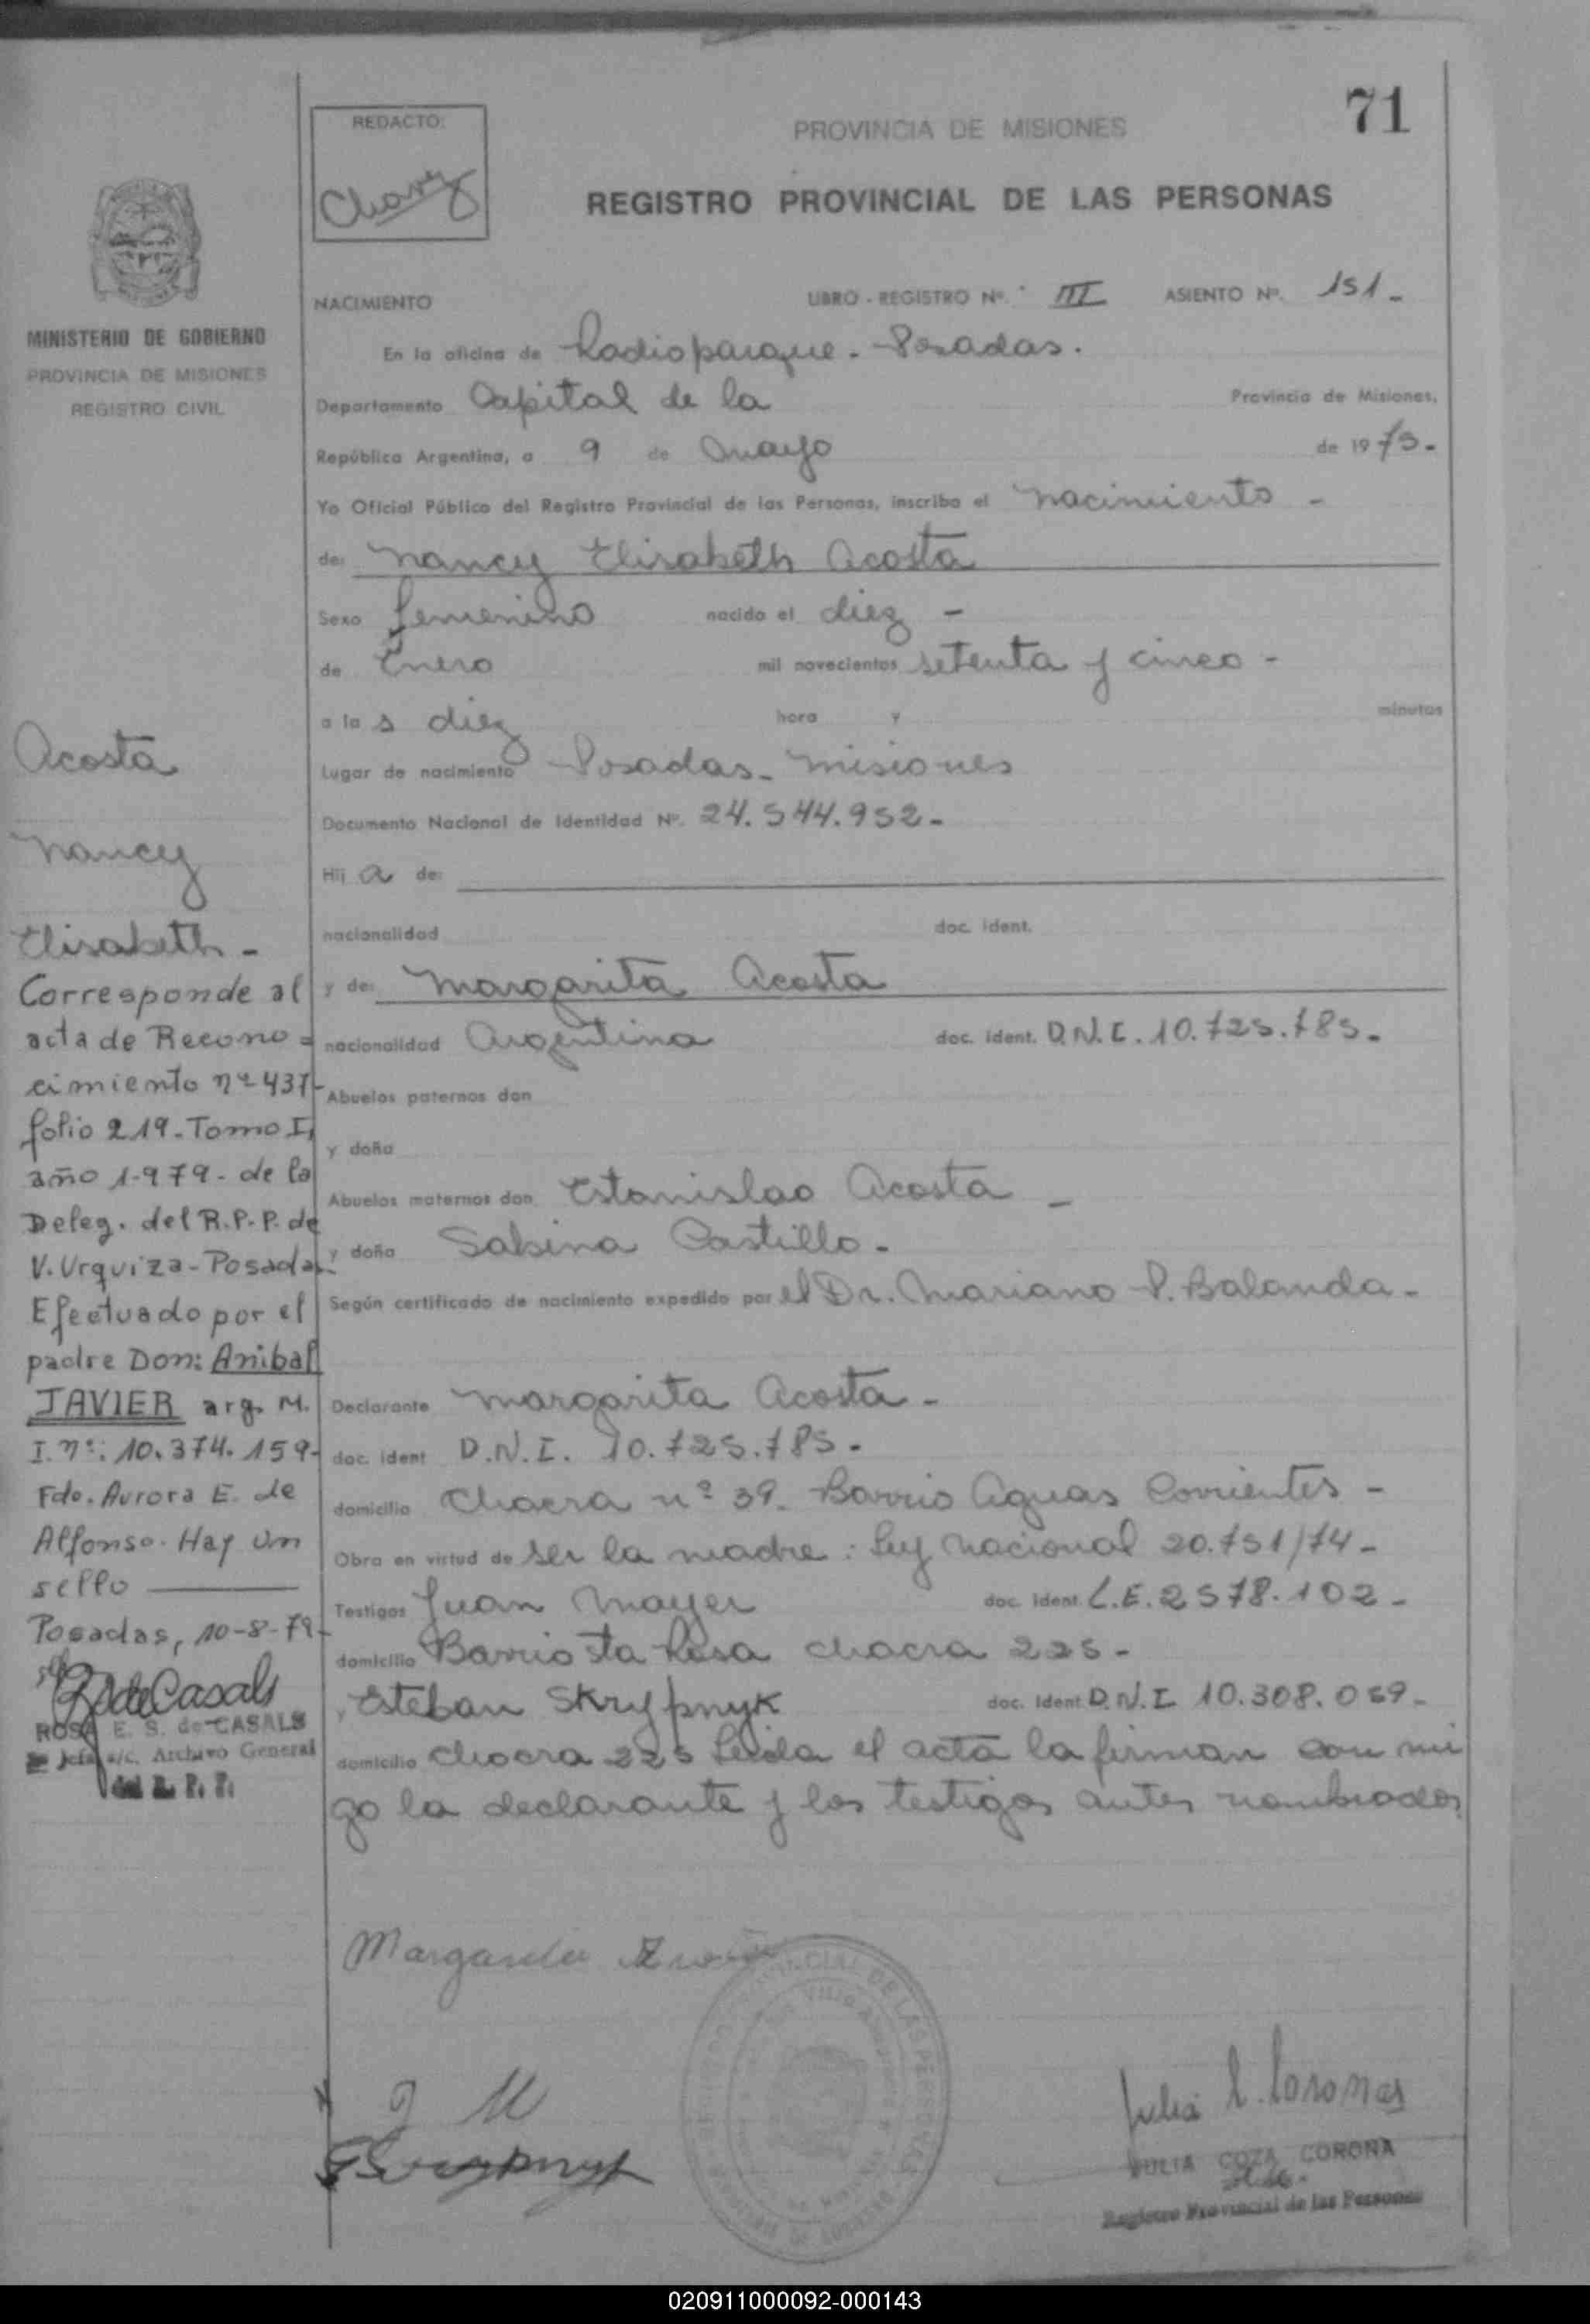 71
REDACTO:
Chavez
PROVINCIA DE MISIONES
REGISTRO PROVINCIAL DE LAS PERSONAS
MINISTERIO DE GOBIERNO
PROVINCIA DE MISIONES
REGISTRO CIVIL
NACIMIENTO LIBRO - REGISTRO Nº. III ASIENTO Nº. 151-
En la oficina de Radioparque - Posadas.
Departamento Capital de la Provincia de Misiones,
República Argentina, a 9 de Mayo de 1975-
Yo Oficial Público del Registro Provincial de las Personas, inscribo el nacimiento -
de: Nancy Elisabeth Acosta
Sexo femenino nacido el diez -
de Enero mil novecientos setenta y cinco -
a la s diez hora y minutos
Lugar de nacimiento Posadas - Misiones
Documento Nacional de Identidad Nº. 24.544.952-
Hij a de:
nacionalidad doc. ident.
y de: Margarita Acosta
nacionalidad Argentina doc. ident. D.N.I. 10.725.785-
Abuelos paternos don
y doña
Abuelos maternos don Estanislao Acosta -
y doña Sabina Castillo -
Según certificado de nacimiento expedido por el Dr. Mariano P. Balanda -
Declarante Margarita Acosta -
doc. ident D.N.I. 10.725.785-
domicilio Chacra nº 39 - Barrio Aguas Corrientes -
Obra en virtud de ser la madre: Ley Nacional 20.751/74-
Testigos Juan Mayer doc. ident. L.E. 2578.102-
domicilio Barrio Sta Rosa chacra 225-
y Esteban Skrypnyk doc. ident. D.N.I. 10.308.059-
domicilio Chacra 225 Leida el acta la firman con mi
go la declarante y los testigos antes nombrados
Acosta
Nancy
Elisabeth -
Corresponde al
acta de Recono=
cimiento nº 437-
folio 219 - Tomo I,
año 1.979 - de la
Deleg. del R.P.P. de
V. Urquiza - Posadas.
Efectuado por el
padre Don: Anibal
JAVIER arg. M.
I. nº: 10.374.159-
Fdo. Aurora E. de
Alfonso. Hay un
sello
Posadas, 10-8-79-
R de Casals
ROSA E. S. de CASALS
Jefa a/c. Archivo General
del R. P. P.
Margarita
J M
ESkrypnyk
PROVINCIAL DE LAS PERSONAS
Julia C. Coronas
JULIA COZA CORONA
Registro Provincial de las Personas
020911000092-000143